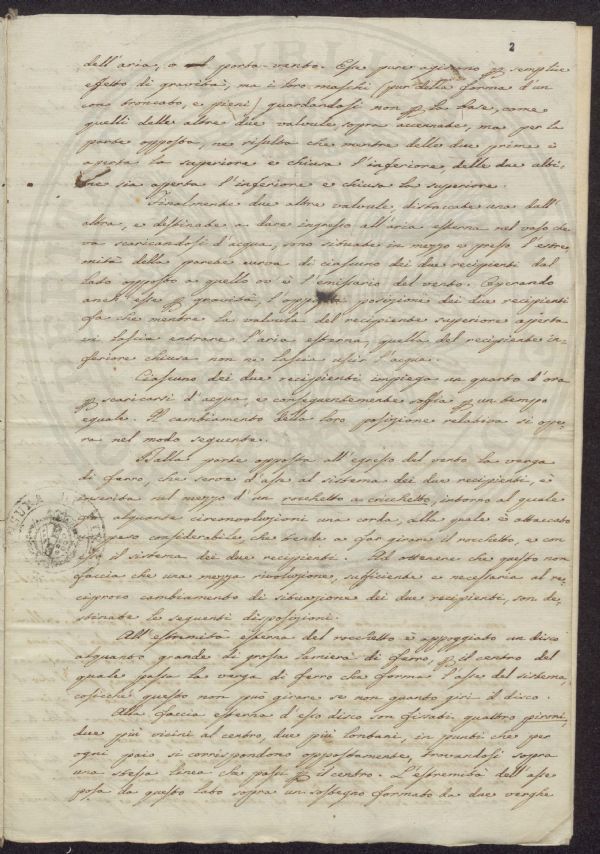 2
dell'aria, o al porta-vento. Esse pure agiscono p semplice
effetto di gravità, ma i loro maschi (pur della forma d'un
cono troncato, e pieni) guardandosi non p la base, come
quelli delle altre due valvule sopra accennate, ma per la
parte opposta, ne risulta che mentre delle due prime è
aperta la superiore e chiusa l'inferiore, delle due alti-
me sia aperta l'inferiore e chiusa la superiore.
Finalmente due altre valvule, distaccate una dall'
altra, e destinate a dare ingresso all'aria esterna nel vaso che
va scaricandosi d'acqua, sono situate in mezzo e presso l'estre-
mità della parete curva di ciascuno dei due recipienti dal
lato opposto a quello ov'è l'emissario del vento. Operando
anch'esse p gravità, l'opposta posizione dei due recipienti
fa che mentre la valvula del recipiente superiore aperta
vi lascia entrare l'aria esterna, quella del recipiente in-
feriore chiusa non ne lascia uscir l'acqua.
Ciascuno dei due recipienti impiega un quarto d'ora
p scaricarsi d'acqua, e conseguentemente soffia p un tempo
eguale. Il cambiamento della loro posizione relativa si ope-
ra nel modo seguente.
Dalla parte opposta all'egresso del vento la verga
di ferro, che serve d'asse al sistema dei due recipienti, è
inserita nel mezzo d'un rocchetto a cricchetto, intorno al quale
fa alquante circonvoluzioni una corda, alla quale è attaccato
peso considerabile, che tende a far girare il rocchetto, e con
il sistema dei due recipienti. Ad ottenere che questo non
faccia che una mezza rivoluzione, sufficiente e necessaria al re-
ciproco cambiamento di situazione dei due recipienti, son de-
stinate le seguenti disposizioni.
All'estremità esterna del rocchetto è appoggiato un disco
alquanto grande di grossa lamiera di ferro, p il centro del
quale passa la verga di ferro che forma l'asse del sistema,
cosicché questo non può girare se non quanto giri il disco.
Alla faccia esterna d'esso disco son fissati quattro pironi,
due più vicini al centro, due più lontani, in punti che per
ogni paio si corrispondono oppostamente, trovandosi sopra
una stessa linea che passi p il centro. L'estremità dell'asse
posa da questo lato sopra un sostegno formato da due verghe